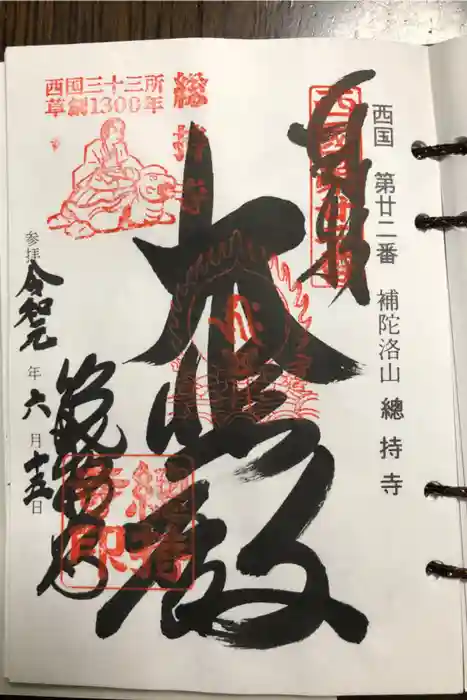 西国 第廿二番 補陀洛山 總持寺
奉拝
大悲殿
西国三十三所
草創1300年
総持寺
参拝 令和元年 六月 十五日
総持寺印